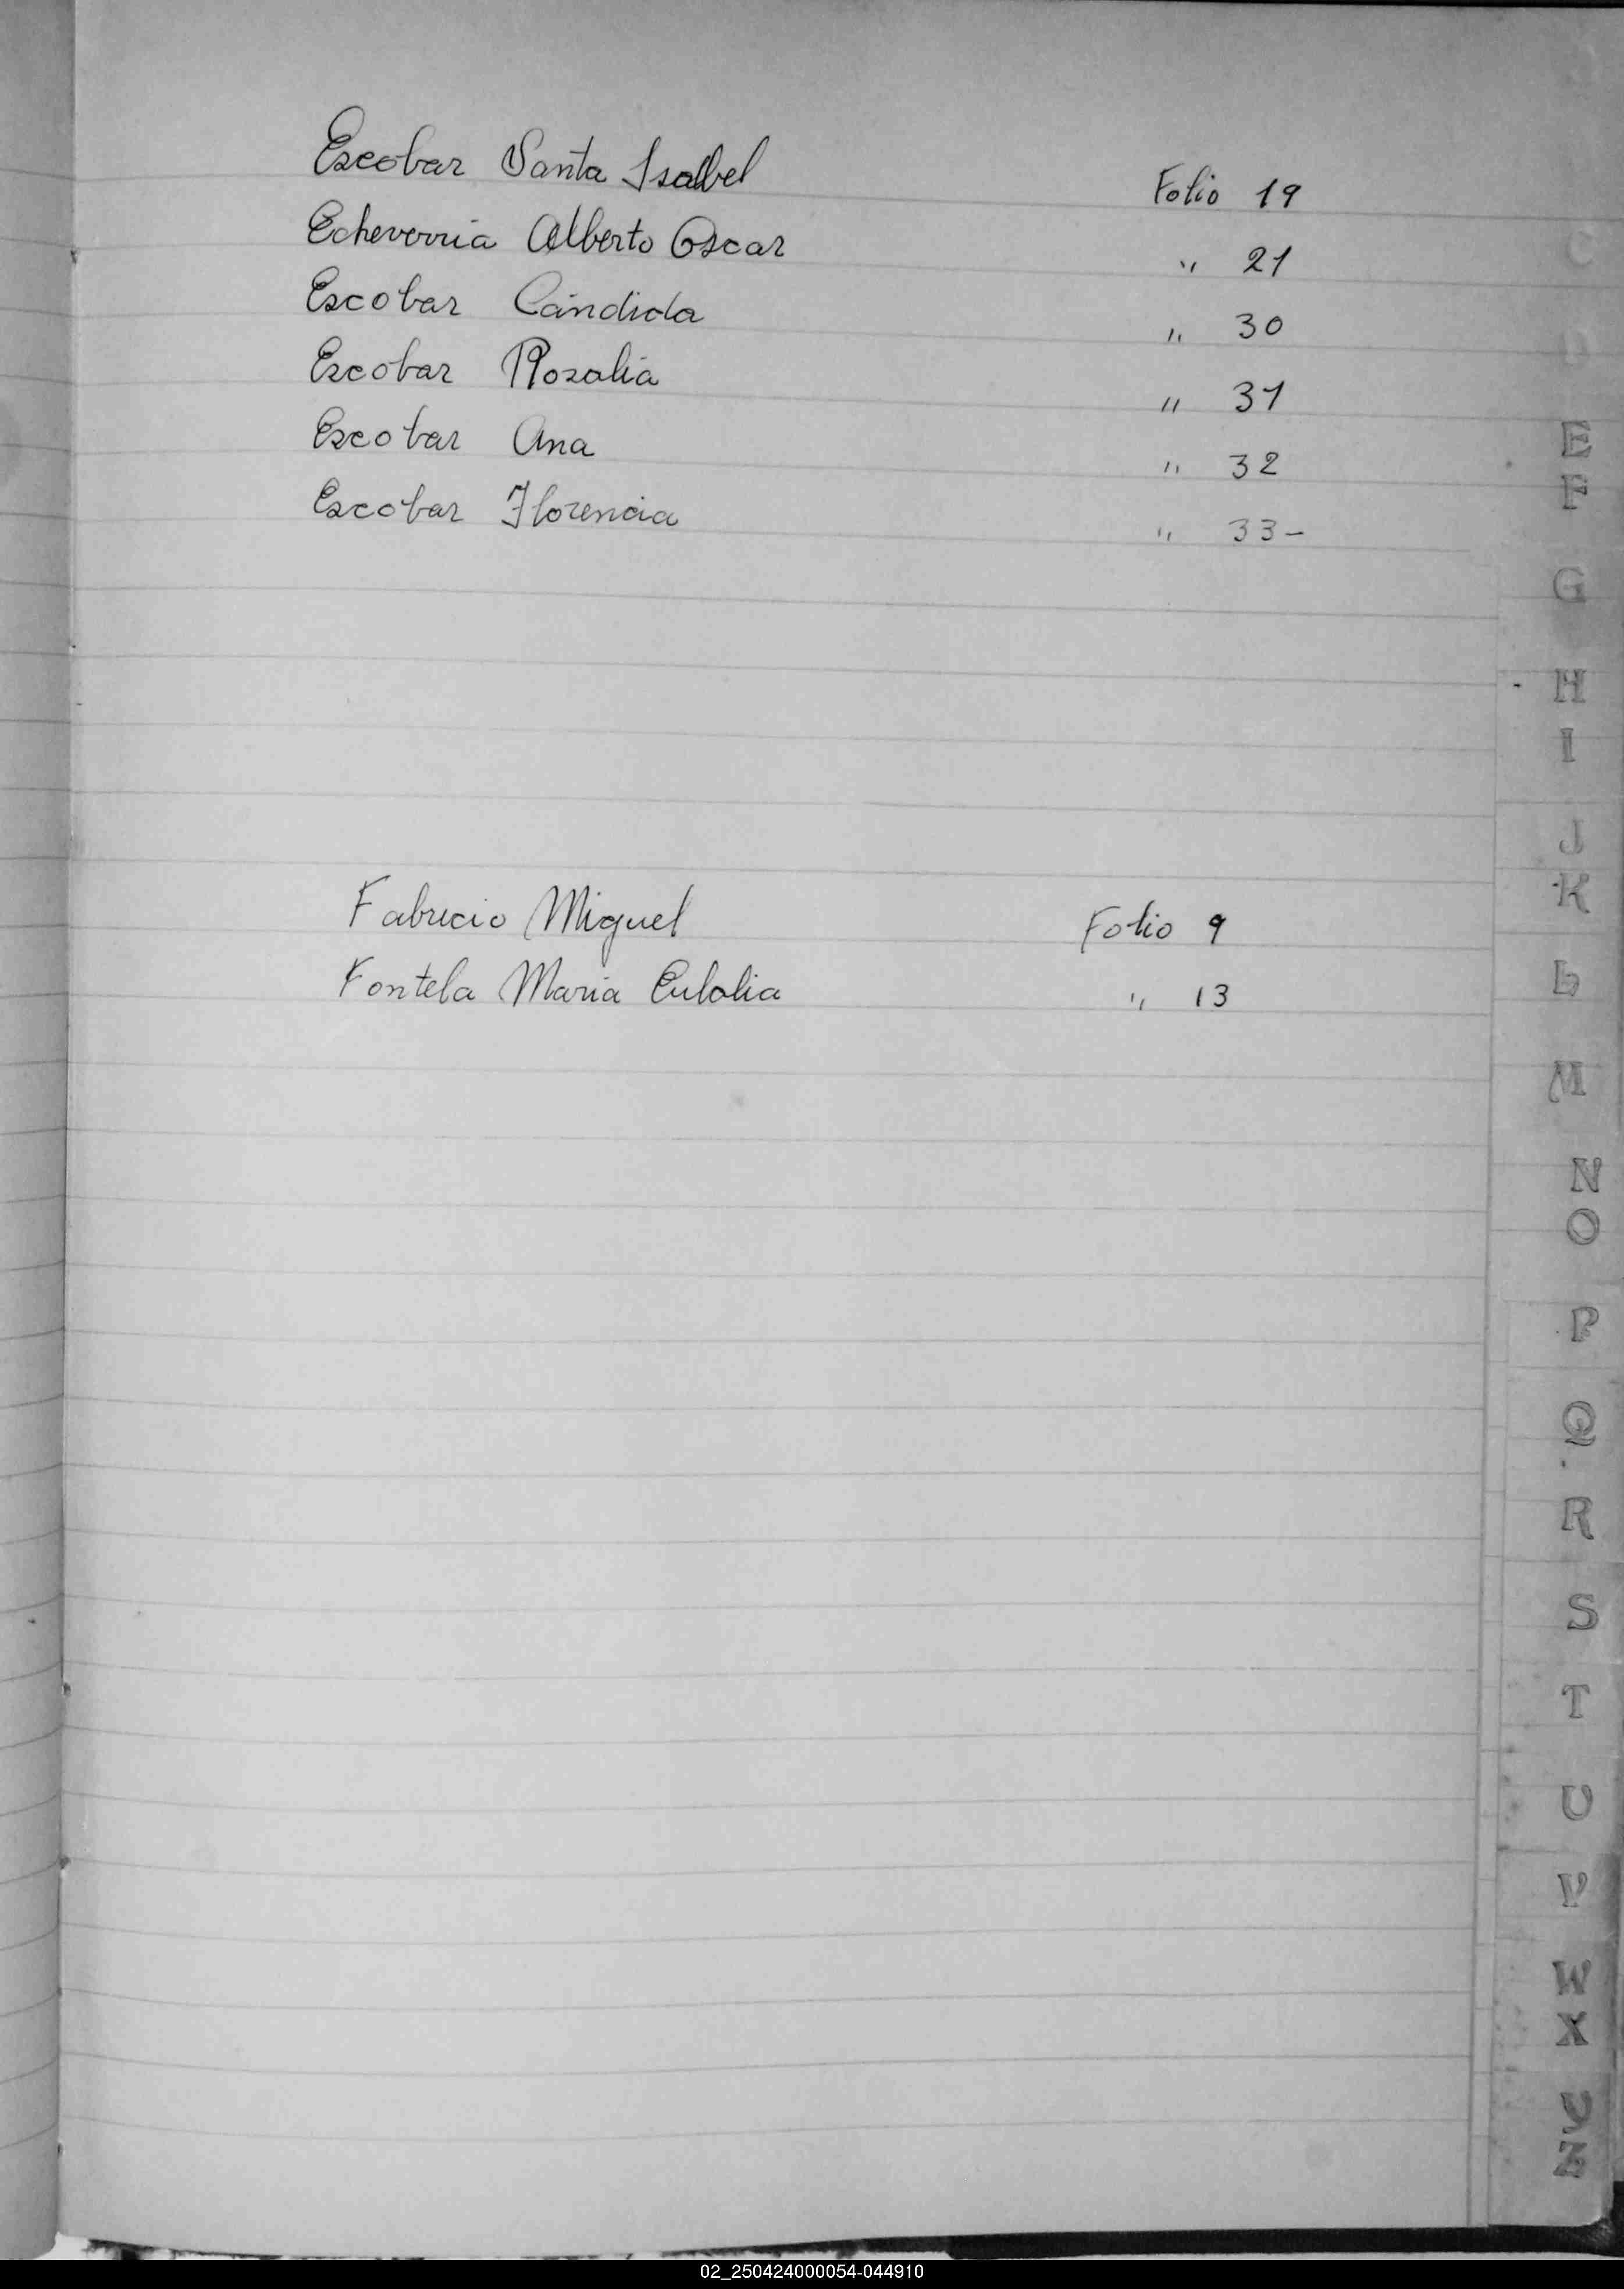 Escobar Santa Isabel Folio 19
Echeverria Alberto Oscar " 21
Escobar Cándida " 30
Escobar Rosalia " 31
Escobar Ana " 32
Escobar Florencia " 33-
Fabricio Miguel Folio 9
Fontela Maria Eulalia " 13
C
D
E
F
G
H
I
J
K
L
M
N
O
P
Q
R
S
T
U
V
W
X
Y
Z
02_250424000054-044910